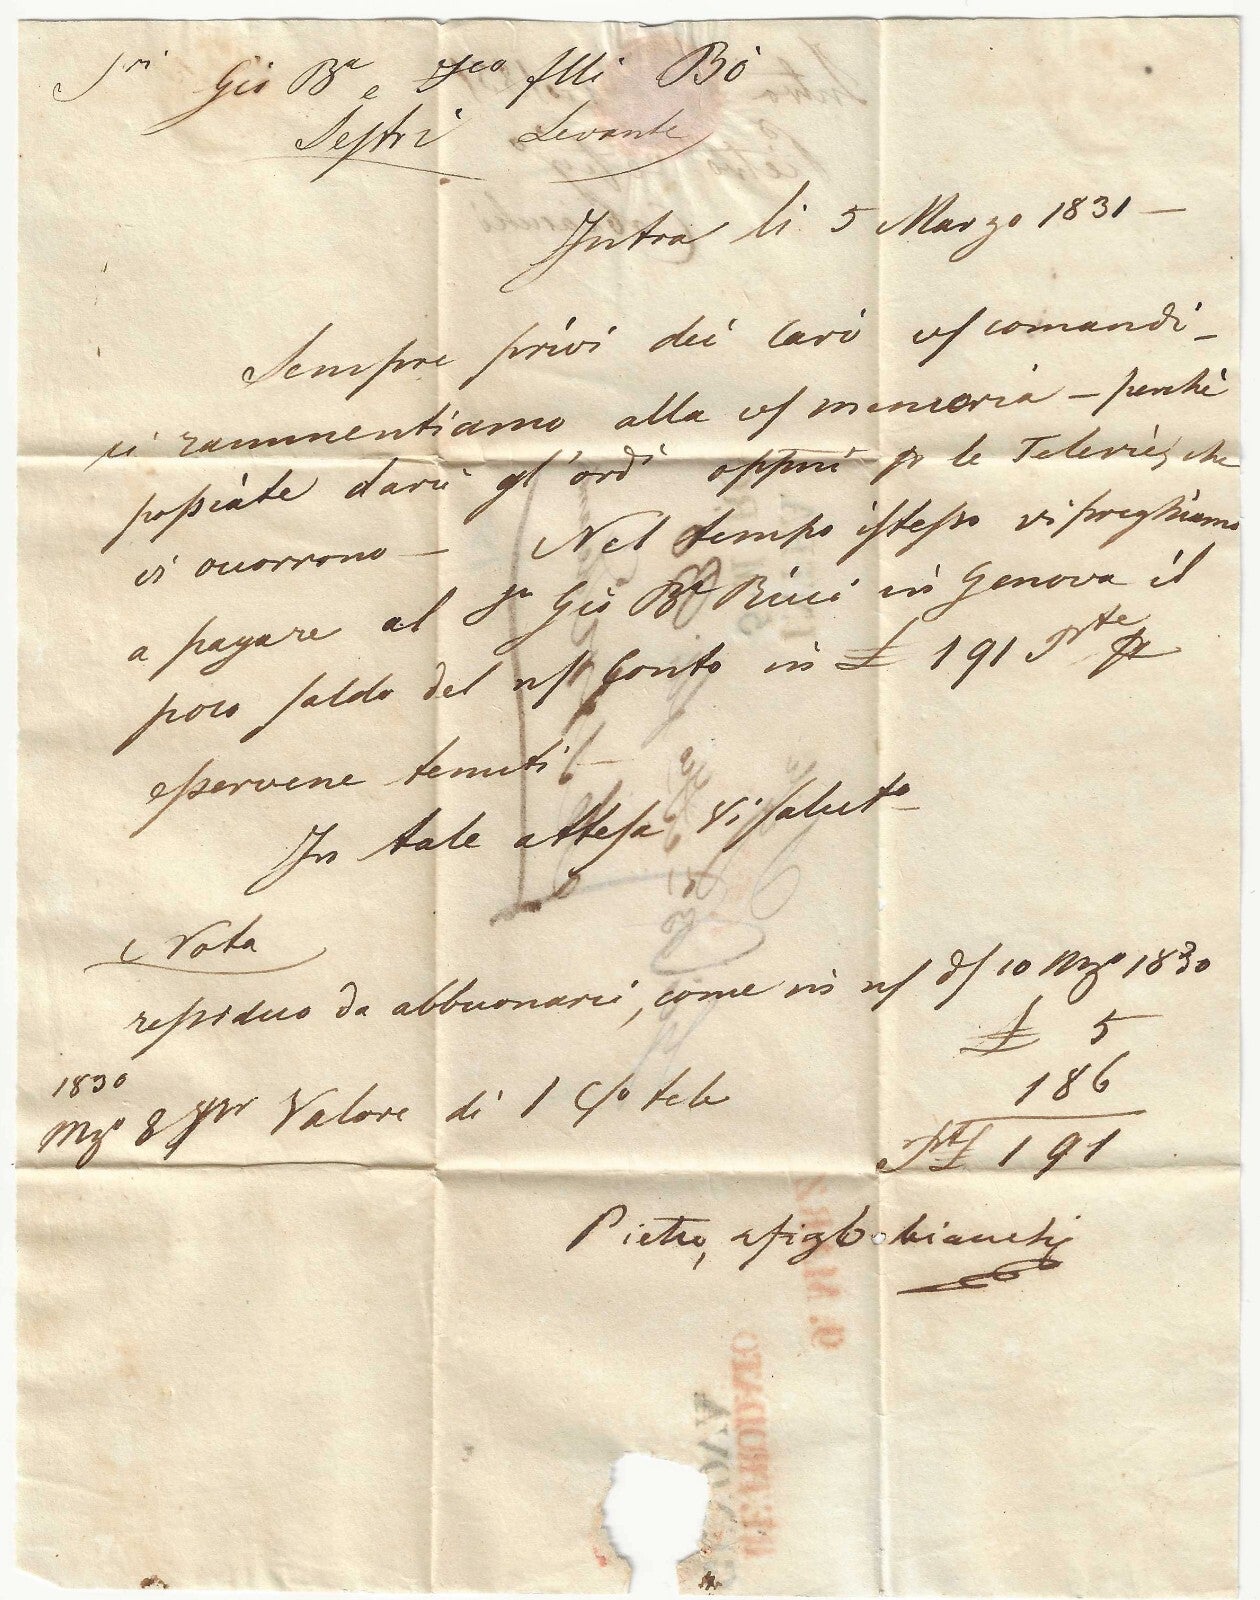 Sri Gio Ba e Fco flli Bò
Sestri Levante
Intra li 5 Marzo 1831 —
Sempre privi dei cari vs comandi —
ci rammentiamo alla vs memoria — perchè
possiate darci gl' ordi oppni pr le Telerie, che
vi ocorrono — Nel tempo istesso vi preghiamo
a pagare al Sr Gio Ba Ricci in Genova il
poco saldo del ns Conto in £ 191 Prte pr
esservene tenuti —
In tale attesa Vi saluto
Nota
residuo da abbuonarci, come in ns ds 10 Mzo 1830
£ 5
1830
Mzo 8 Valore di 1 Cso tele 186
£ 191
Pietro, e figlo bianchi
GENOVA
9. MARZ